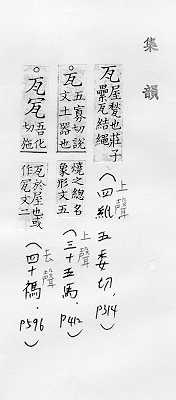 集韻
瓦屋甃也莊子
纍瓦結繩
(上聲四紙五委切.P314)
○瓦五寡切說
文土器也
燒之總名
象形文五
(上聲三十五馬.P412)
○瓦㼘吾化
切施
瓦於屋也或
作㼘文二
(去聲四十禡.P596)